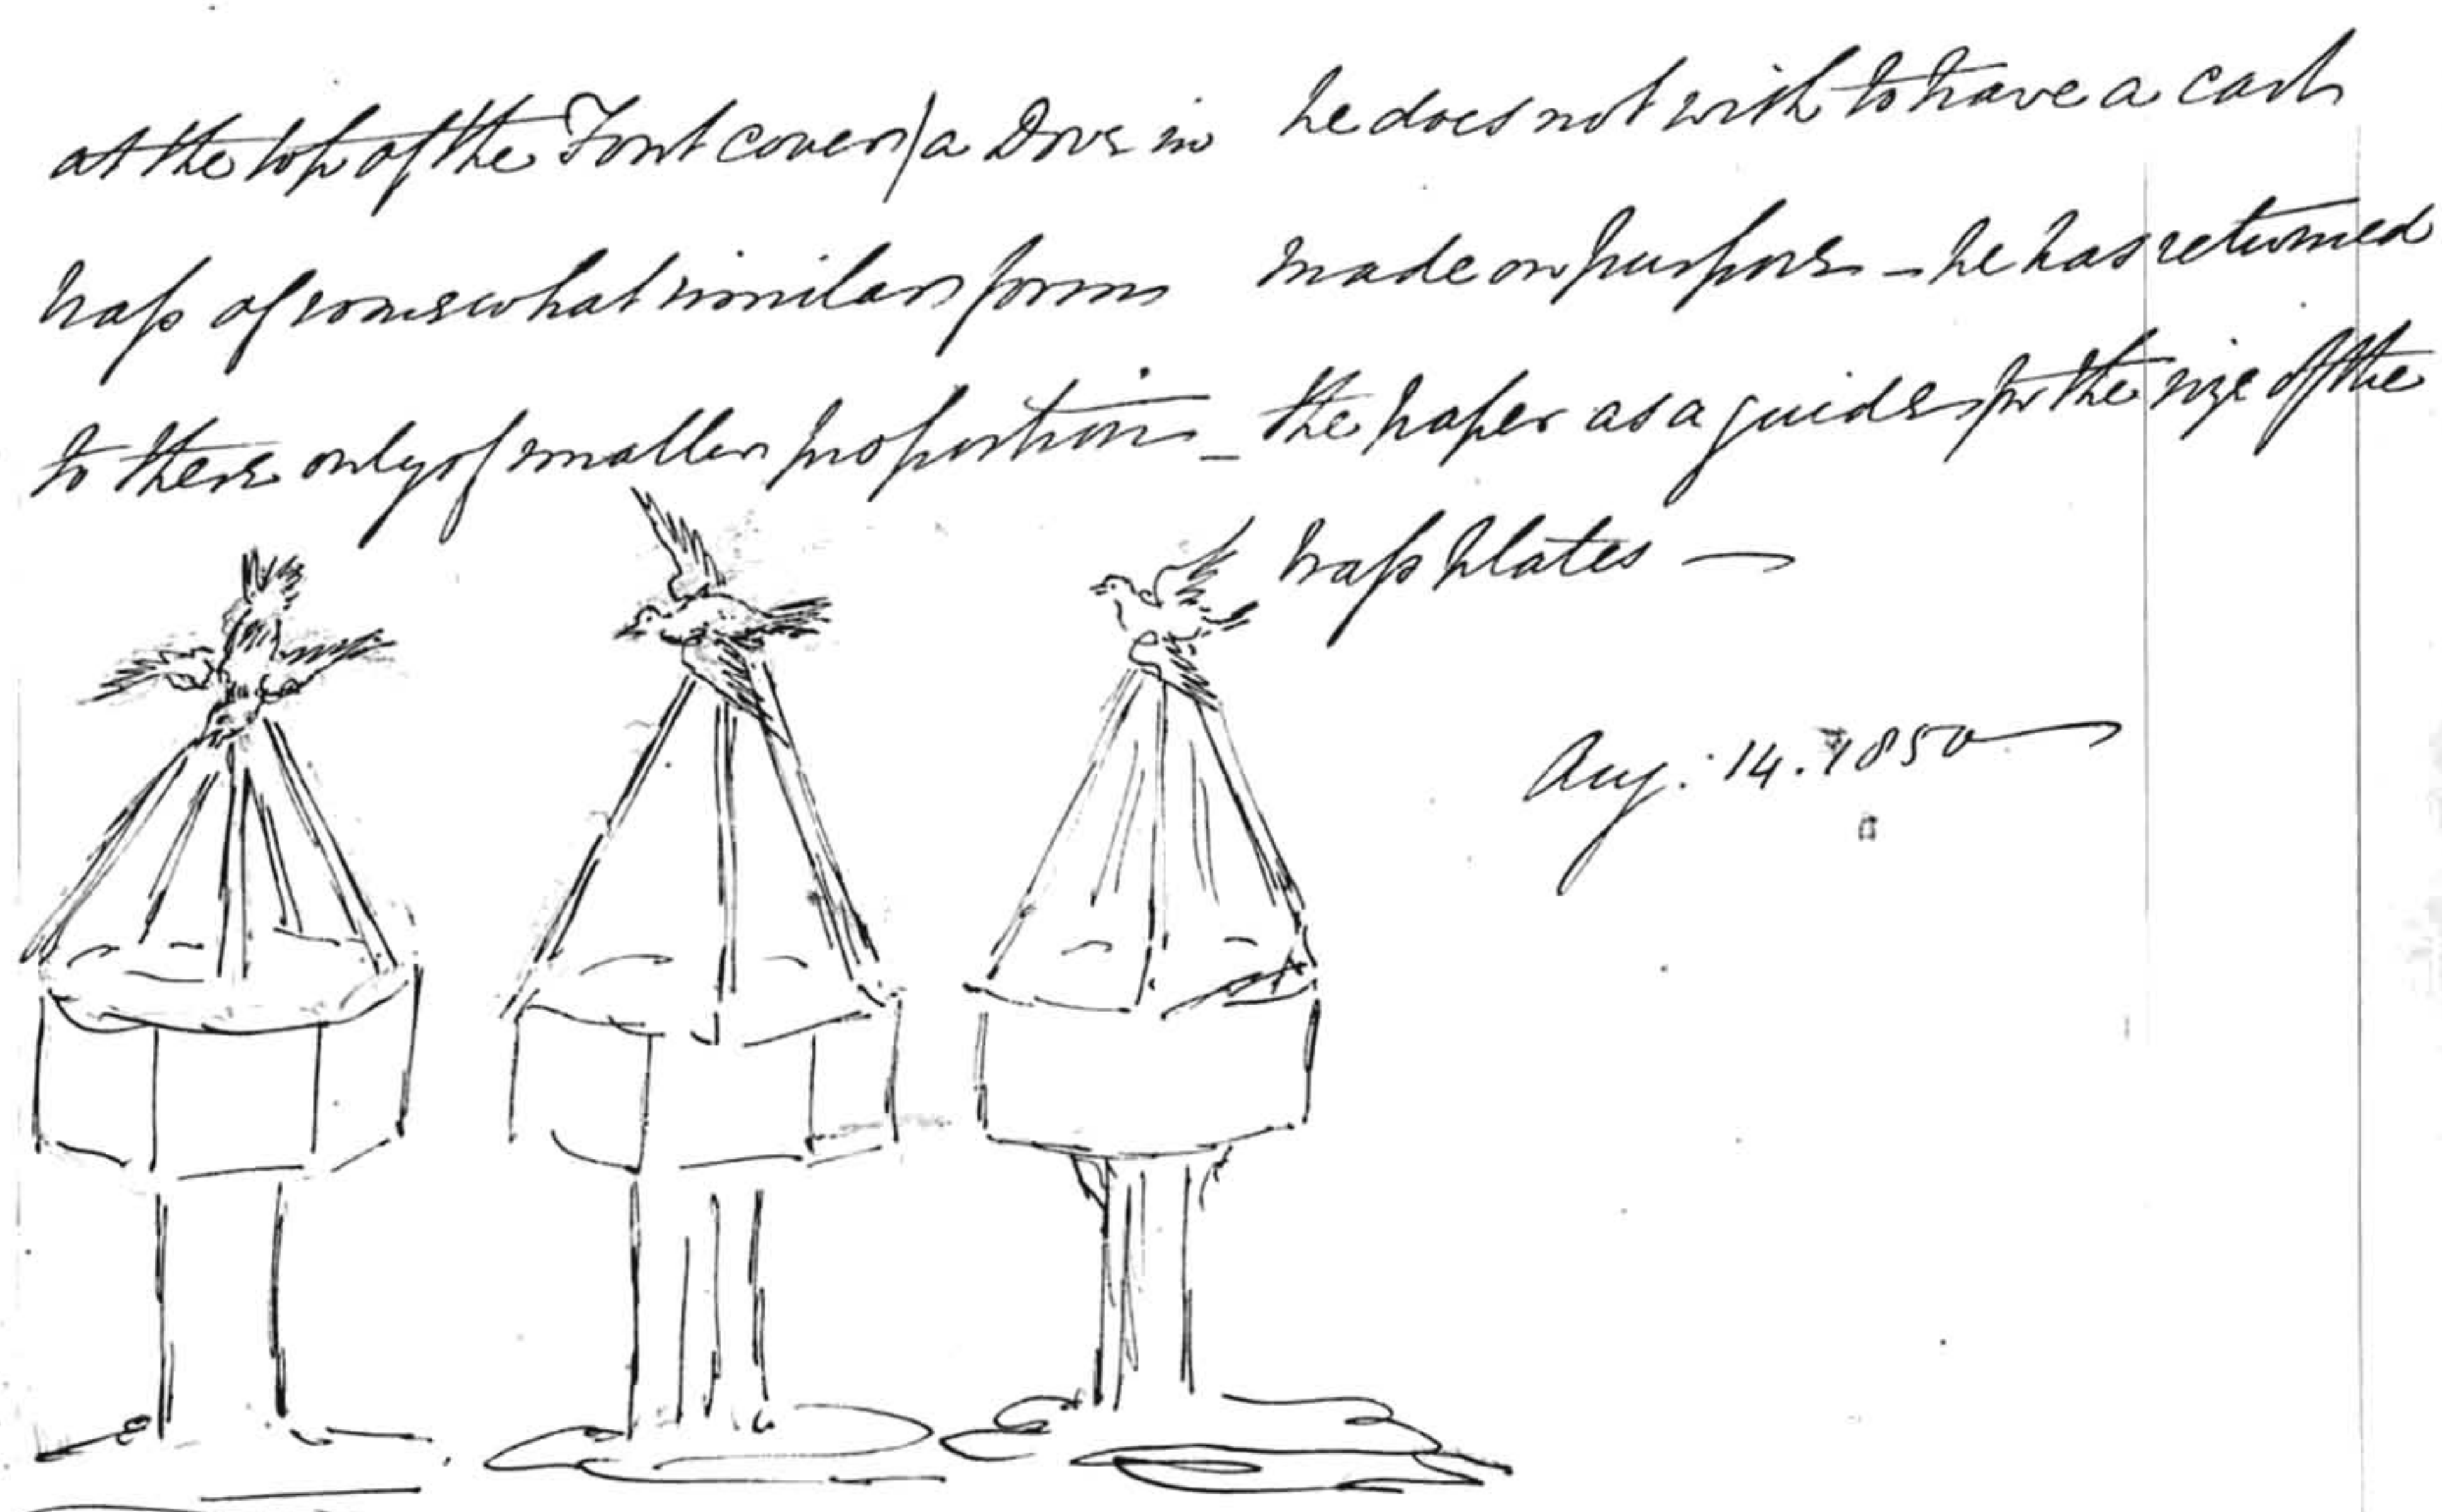 at the top of the Font cover) a Dove in
brass of somewhat similar form
to these only of smaller proportion –
he does not wish to have a cast
made on purpose – he has returned
the paper as a guide for the size of the
brass plates —
Aug: 14. 1850